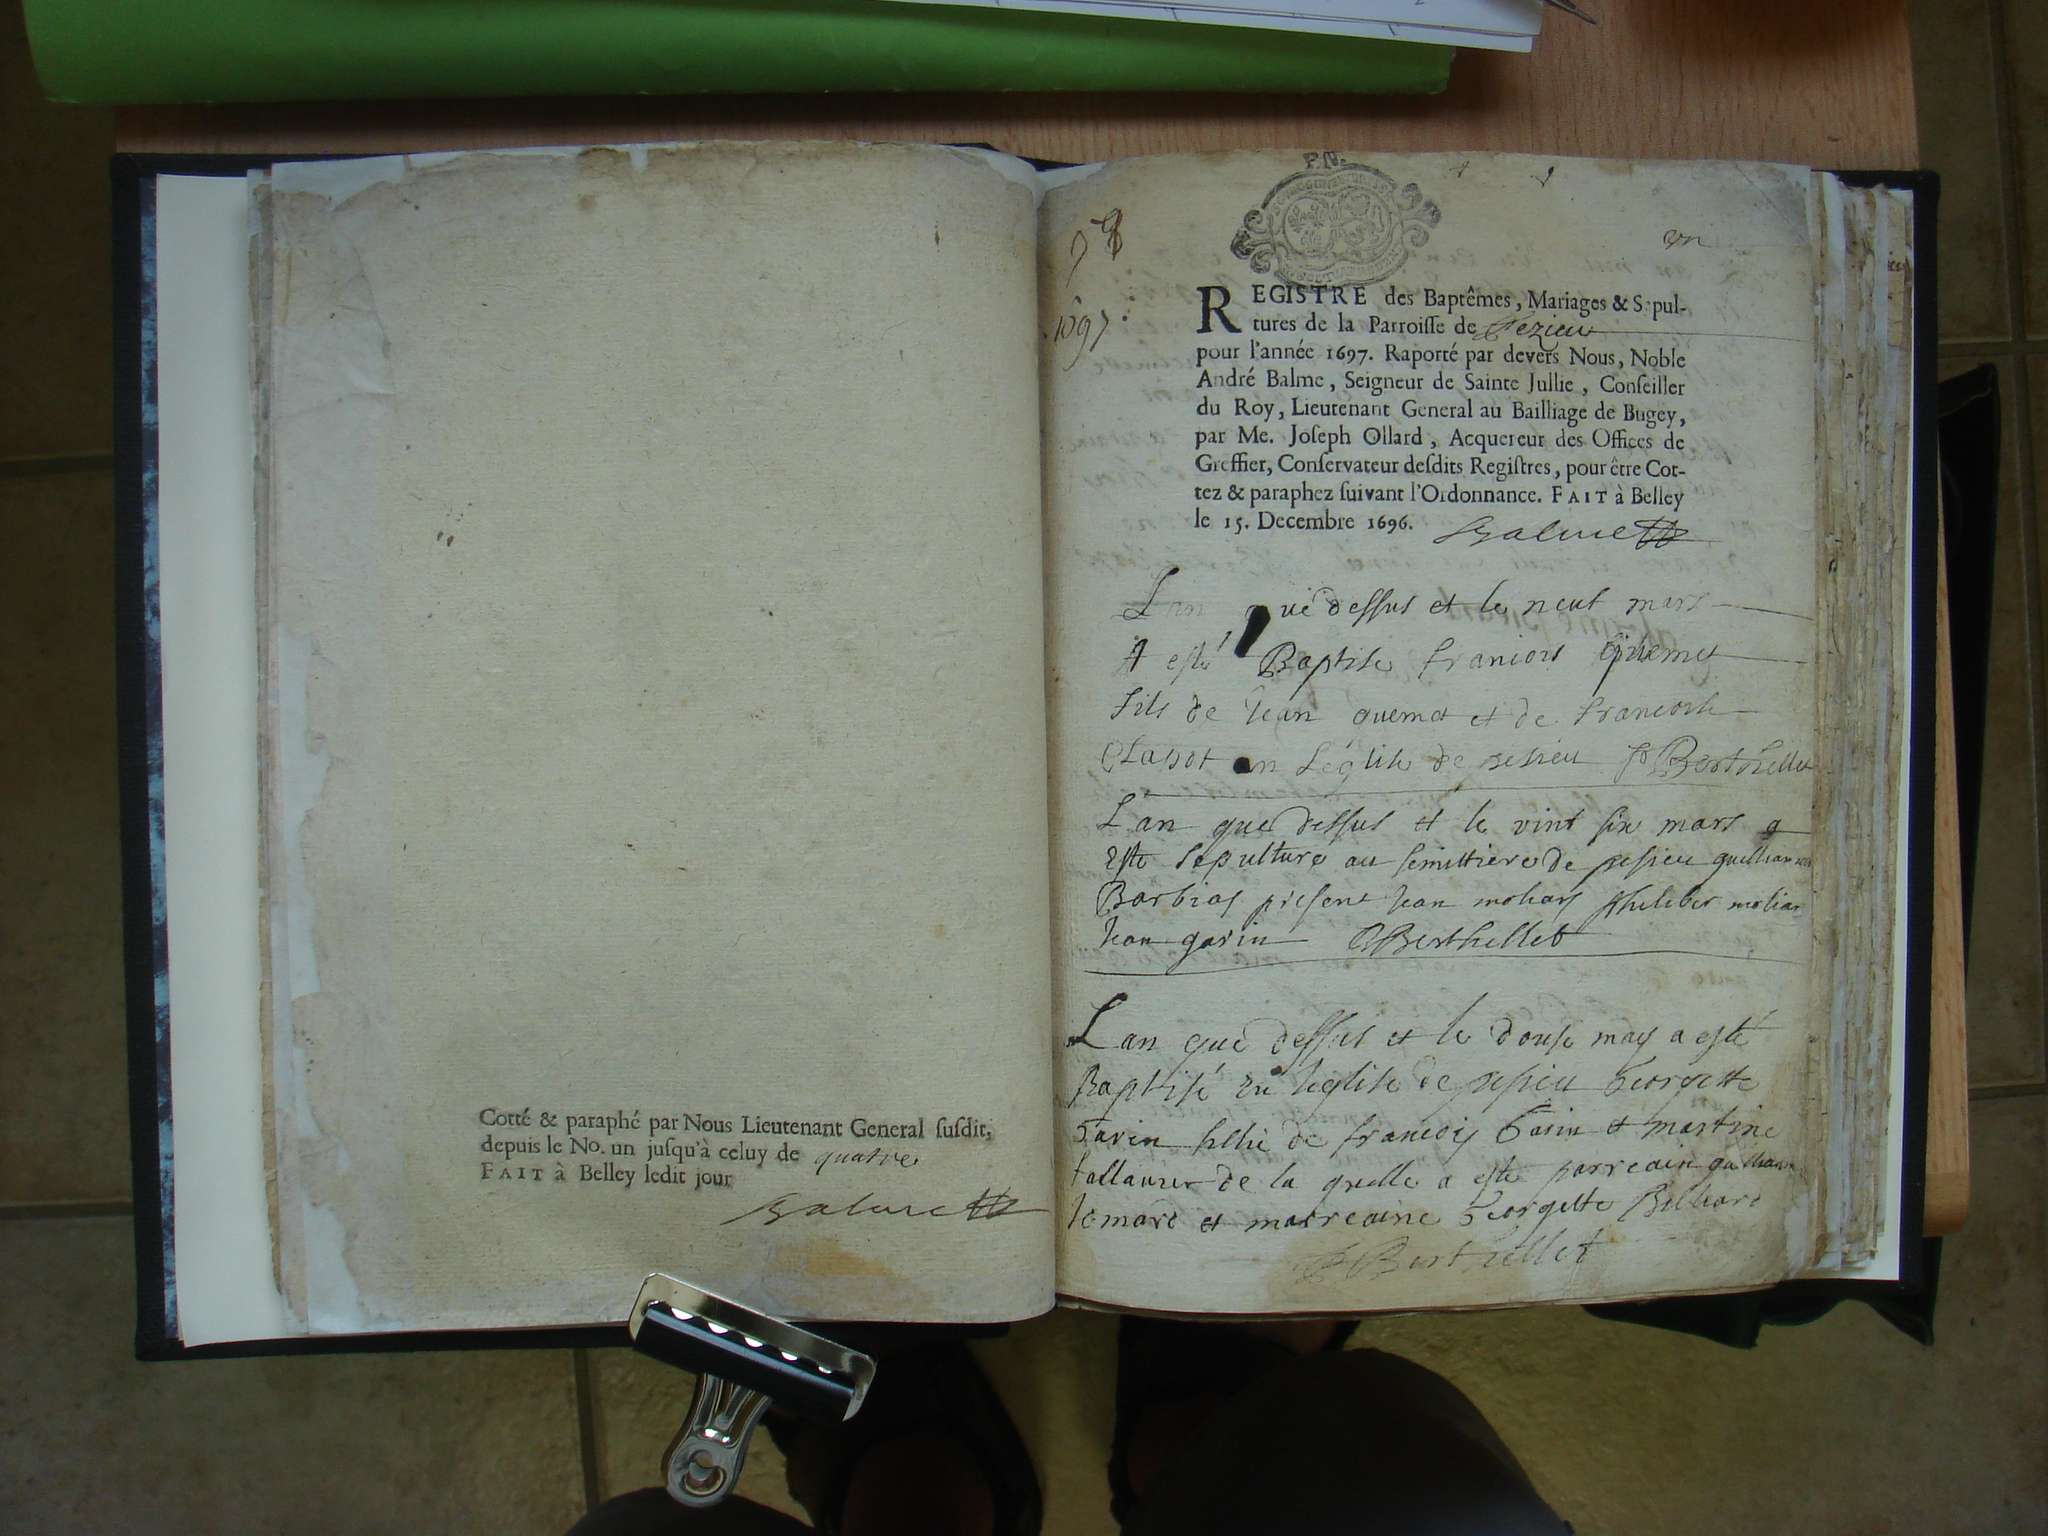 Cotté & paraphé par Nous Lieutenant General susdit,
depuis le No. un jusqu'à celuy de quatre
FAIT à Belley ledit jour
Balme
1697
un
REGISTRE des Baptêmes, Mariages & Sepul-
tures de la Parroisse de Pezieu
pour l'année 1697. Raporté par devers Nous, Noble
André Balme, Seigneur de Sainte Jullie, Conseiller
du Roy, Lieutenant General au Bailliage de Bugey,
par Me. Joseph Ollard, Acquereur des Offices de
Greffier, Conservateur desdits Registres, pour être Cot-
tez & paraphez suivant l'Ordonnance. FAIT à Belley
le 15. Decembre 1696. Balme
Lan que dessus et le neuf mars
A esté Baptise francois
fils de Jean quemet et de
en Léglise de pesieu Berthellet
Lan que dessus et le vint six mars a
Este sepulture au semittiere de pesieu
present Jean philiber
Jean garin Berthellet
Lan que dessus et le douse may a esté
Baptisé en leglise de pesieu Georgette
Garin fillie de francois Garin et martine
de la quelle a este parreain
et marreaine Georgette Billiard
Berthellet